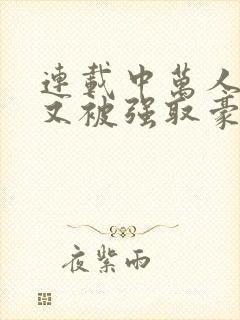 連載中萬人
又被強取豪
夜紫雨